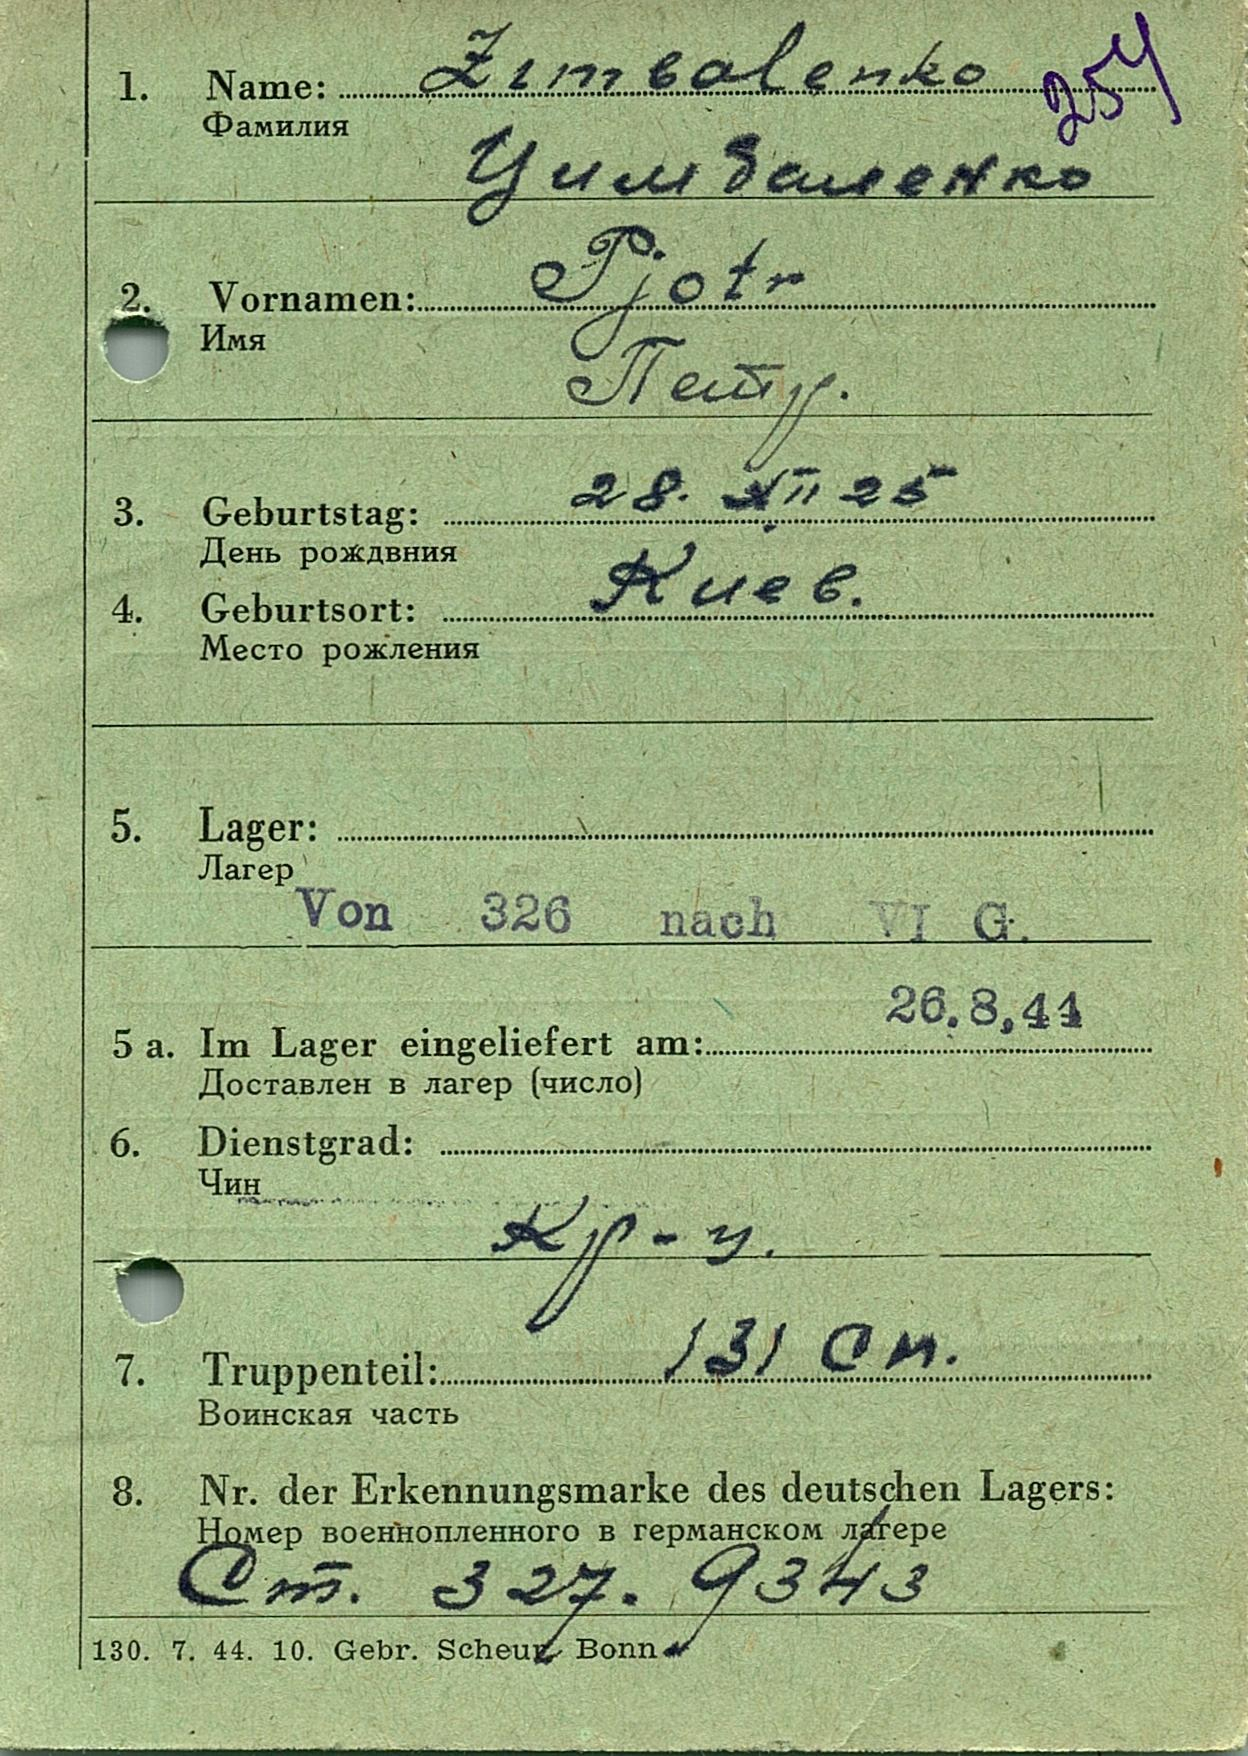 1. Name: Zimbalenko 254
Фамилия
Цимбаленко
2. Vornamen: Pjotr
Имя
Петр.
3. Geburtstag: 28. XII 25
День рождвния
4. Geburtsort: Киев.
Место рожления
5. Lager:
Лагер
Von 326 nach VI G.
26.8,44
5 a. Im Lager eingeliefert am:
Доставлен в лагер (число)
6. Dienstgrad:
Чин
Кр-ц.
7. Truppenteil: 131 сп.
Воинская часть
8. Nr. der Erkennungsmarke des deutschen Lagers:
Номер военнопленного в германском лагере
Ст. 327. 9343
130. 7. 44. 10. Gebr. Scheur, Bonn